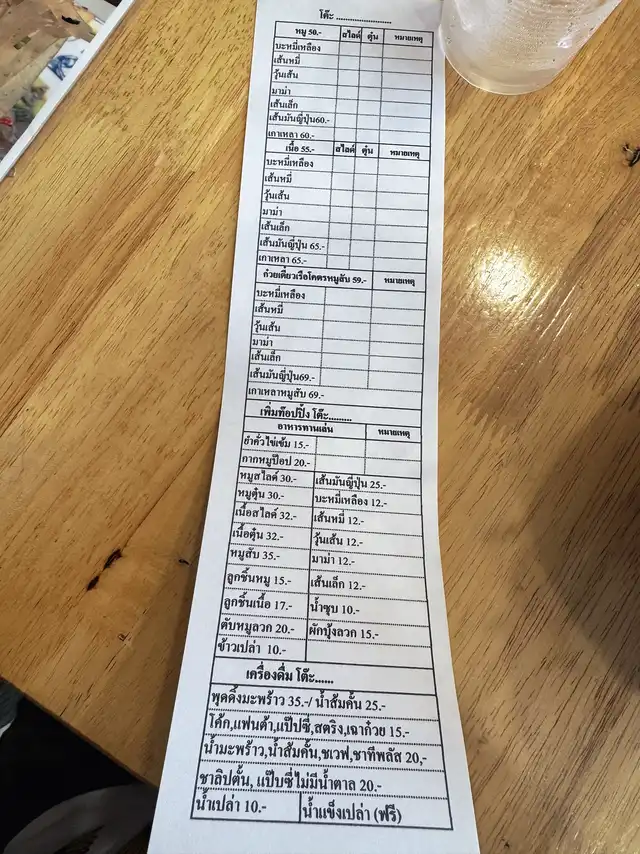 โต๊ะ ......................
หมู 50.- สไลด์ ตุ๋น หมายเหตุ
บะหมี่เหลือง
เส้นหมี่
วุ้นเส้น
มาม่า
เส้นเล็ก
เส้นมันญี่ปุ่น60.-
เกาเหลา 60.-
เนื้อ 55.- สไลด์ ตุ๋น หมายเหตุ
บะหมี่เหลือง
เส้นหมี่
วุ้นเส้น
มาม่า
เส้นเล็ก
เส้นมันญี่ปุ่น 65.-
เกาเหลา 65.-
ก๋วยเตี๋ยวเรือโคตรหมูสับ 59.- หมายเหตุ
บะหมี่เหลือง
เส้นหมี่
วุ้นเส้น
มาม่า
เส้นเล็ก
เส้นมันญี่ปุ่น69.-
เกาเหลาหมูสับ 69.-
เพิ่มท๊อปปิ้ง โต๊ะ.........
อาหารทานเล่น หมายเหตุ
ยำคั่วไข่เข้ม 15.-
กากหมูป๊อป 20.-
หมูสไลด์ 30.- เส้นมันญี่ปุ่น 25.-
หมูตุ๋น 30.- บะหมี่เหลือง 12.-
เนื้อสไลด์ 32.- เส้นหมี่ 12.-
เนื้อตุ๋น 32.- วุ้นเส้น 12.-
หมูสับ 35.- มาม่า 12.-
ลูกชิ้นหมู 15.- เส้นเล็ก 12.-
ลูกชิ้นเนื้อ 17.- น้ำซุบ 10.-
ตับหมูลวก 20.- ผักบุ้งลวก 15.-
ข้าวเปล่า 10.-
เครื่องดื่ม โต๊ะ......
พุดดิ้งมะพร้าว 35.-/ น้ำส้มคั้น 25.-
โค้ก,แฟนต้า,แป๊ปซี่,สตริง,เฉาก๋วย 15.-
น้ำมะพร้าว,น้ำส้มคั้น,ชเวฟ,ชาทีพลัส 20,-
ชาลิปตั้น, แป๊บซี่ไม่มีน้ำตาล 20.-
น้ำเปล่า 10.- น้ำแข็งเปล่า (ฟรี)